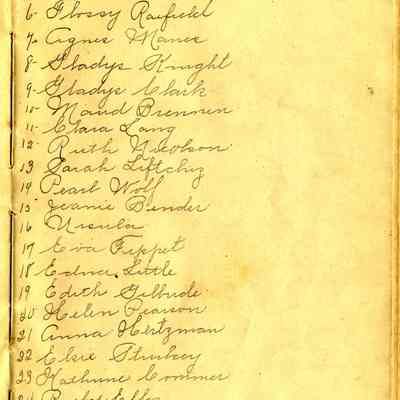 6- Flossy Raefield
7- Agnes Manee
8- Gladys Knight
9- Gladys Clark
10- Maud Brennen
11- Clara Lang
12- Ruth Nicolson
13 Sarah Liftchiz
14 Pearl Wolf
15 Jeanie Bender
16 Ursula
17 Eva Tippet
18 Edna Little
19 Edith Gilbride
20 Helen Pearson
21 Anna Hertzman
22 Elsie Sturkey
23 Kathrine Commer
24